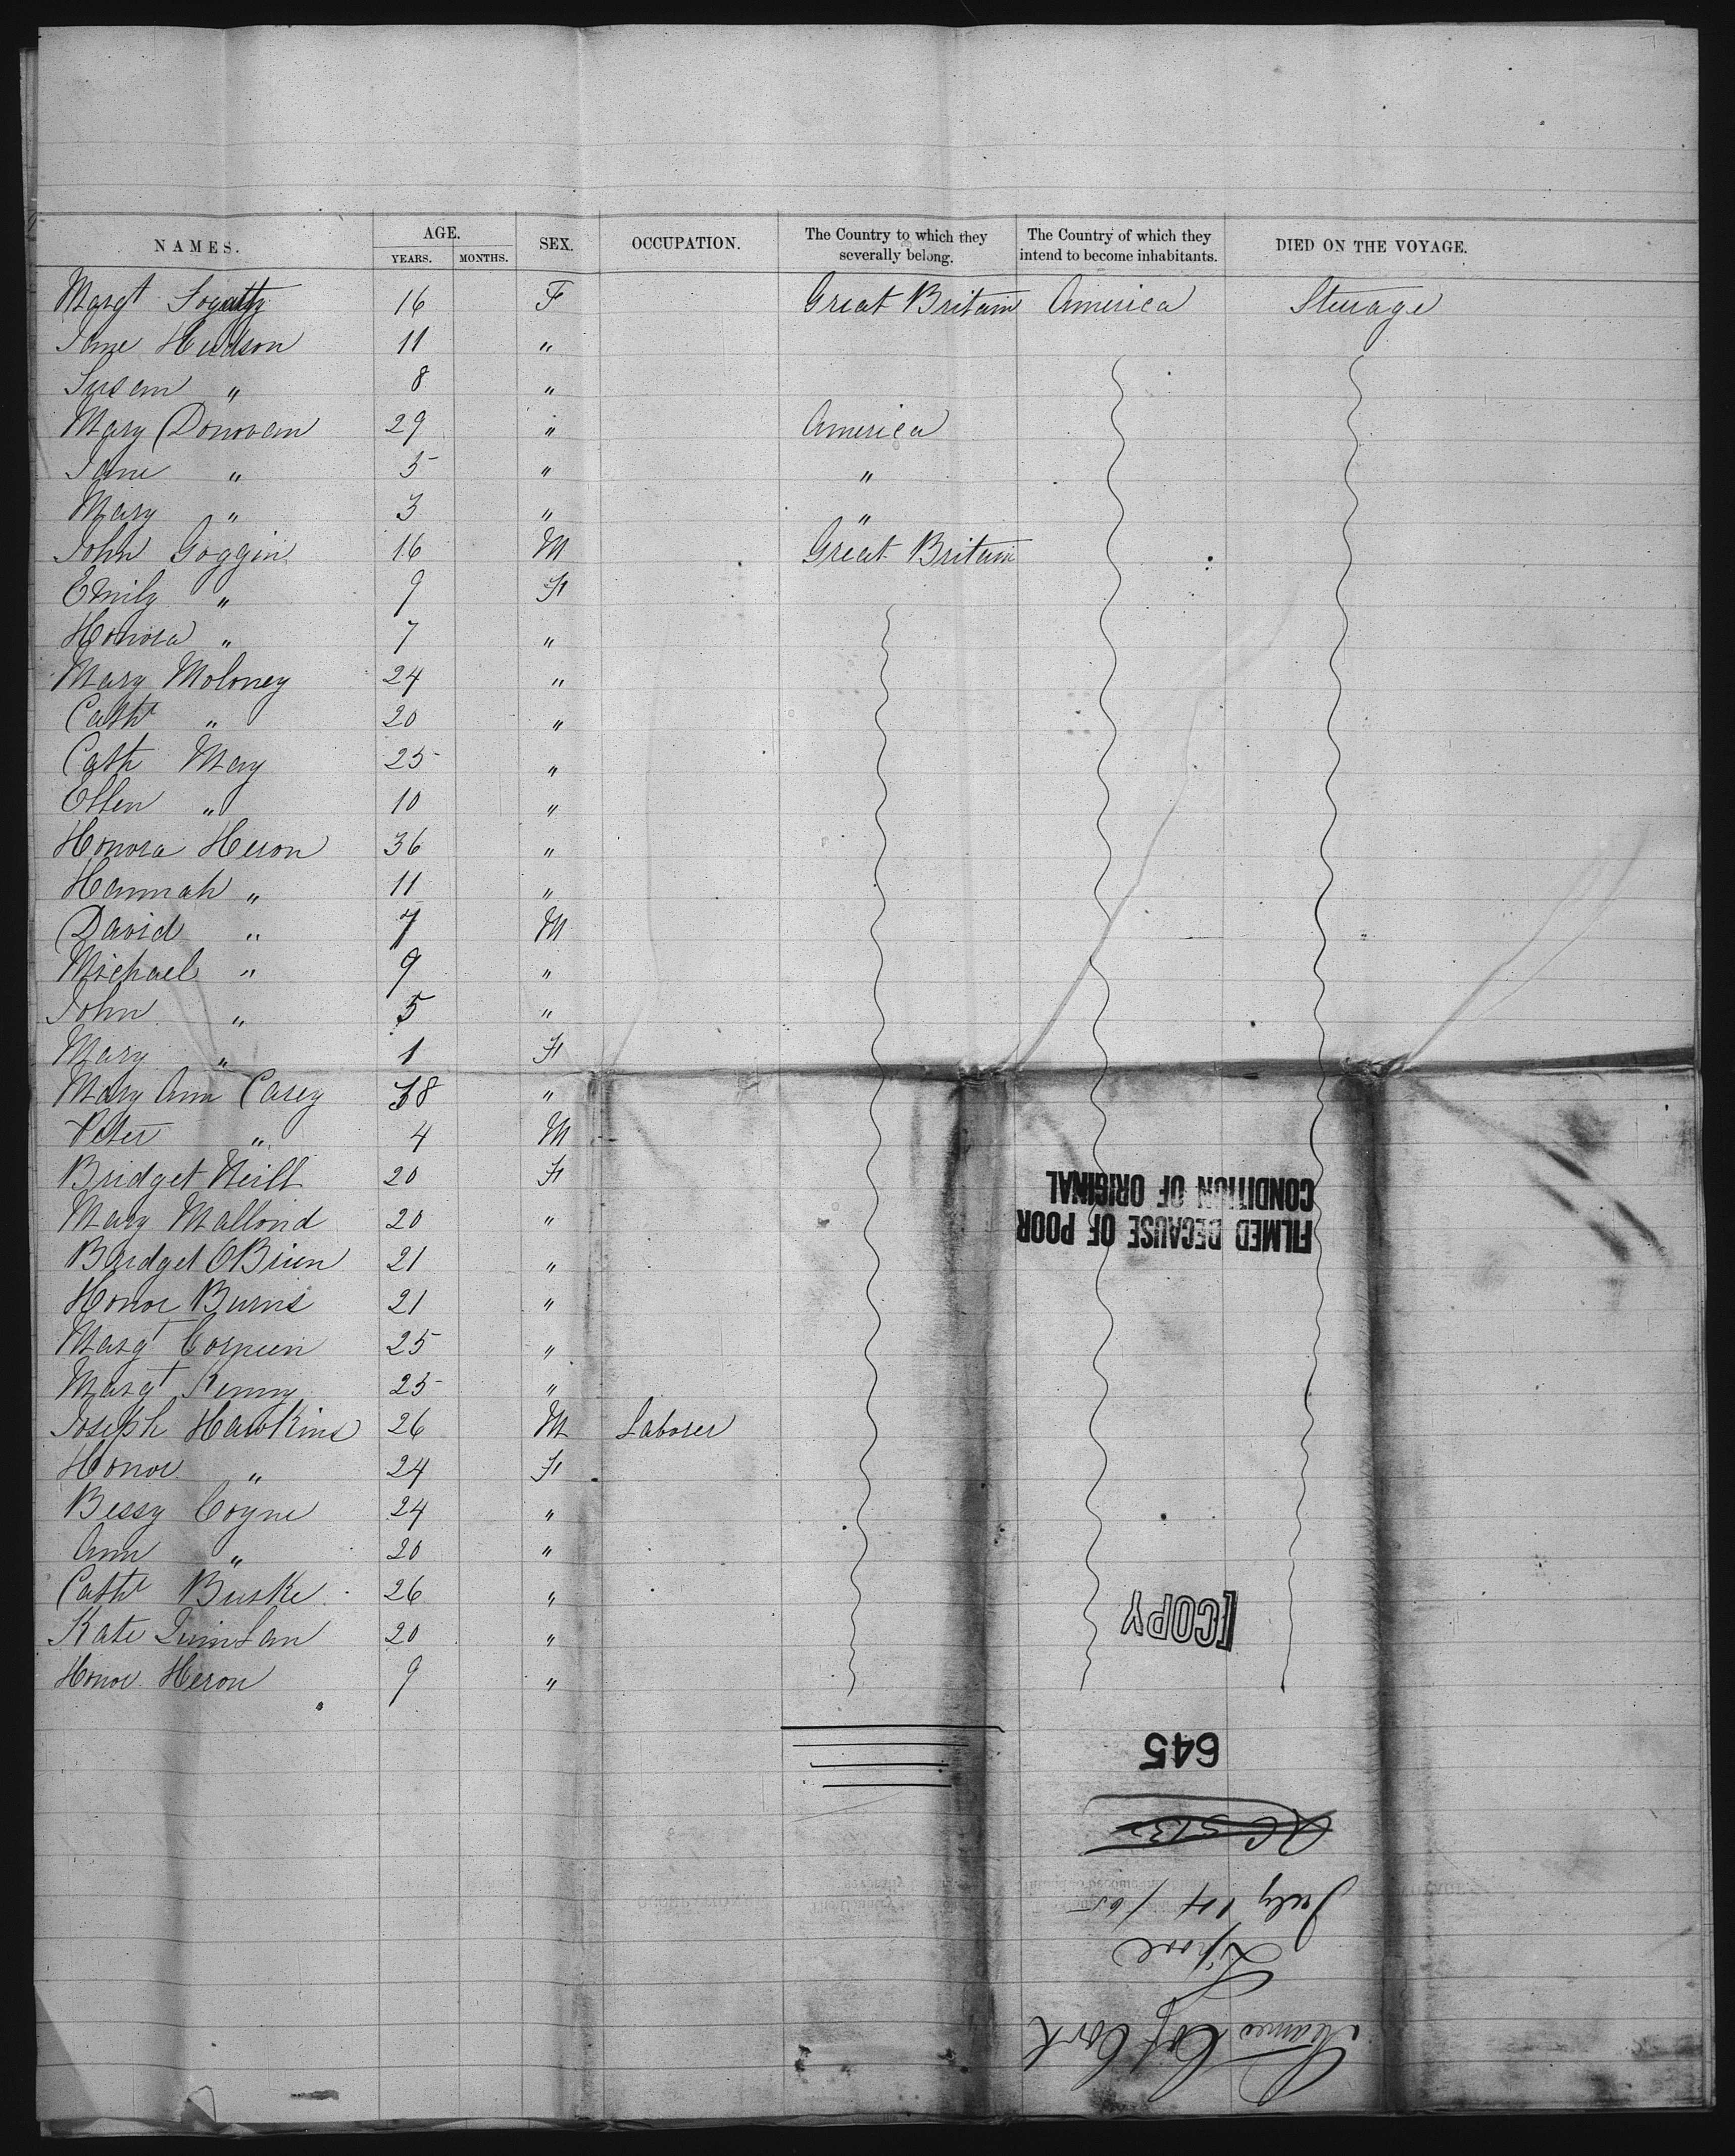 NAMES. AGE. YEARS. MONTHS. SEX. OCCUPATION. The Country to which they severally belong. The Country of which they intend to become inhabitants. DIED ON THE VOYAGE.
Margt 16 F Great Britain America Steerage
Jane Hudson 11 "
Susan " 8 "
Mary Donovan 29 " America
Jane " 5 " "
Mary " 3 " "
John Goggin 16 M Great Britain
Emily " 9 F
Honora " 7 "
Mary Moloney 24 "
Cathr " 20 "
Cath May 25 "
Ellen " 10 "
Honora Heron 36 "
Hannah " 11 "
David " 7 M
Michael " 9 "
John " 5 "
Mary " 1 F
Mary Ann Casey 38 "
Peter " 4 M
Bridget Neill 20 F
Mary Mallond 20 "
Bridget OBrien 21 "
Honor Burns 21 "
Margt 25 "
Margt Kenny 25 "
Joseph Hawkins 26 M Laborer
Honor " 24 F
Bessy Coyne 24 "
Ann " 20 "
Cathr Burke 26 "
Kate Quinlan 20 "
Honor Heron 9 "
FILMED BECAUSE OF POOR
CONDITION OF ORIGINAL
[COPY
645
Steamer City Cork
L'pool
July 14/65